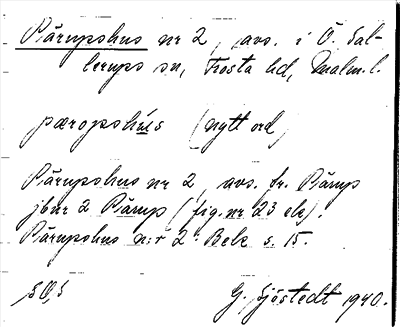 Pärupshus nr 2, avs. i Ö. Sal-
lerups sn, Frosta hd, Malm. l.
pæropshu̱s (nytt ord)
Pärupshus nr 2, avs. fr. Pärup
jbnr 2 Pärup (fig. nr 23 ek).
Pärupshus n:r 2: Bek s. 15.
G. Sjöstedt 1940.